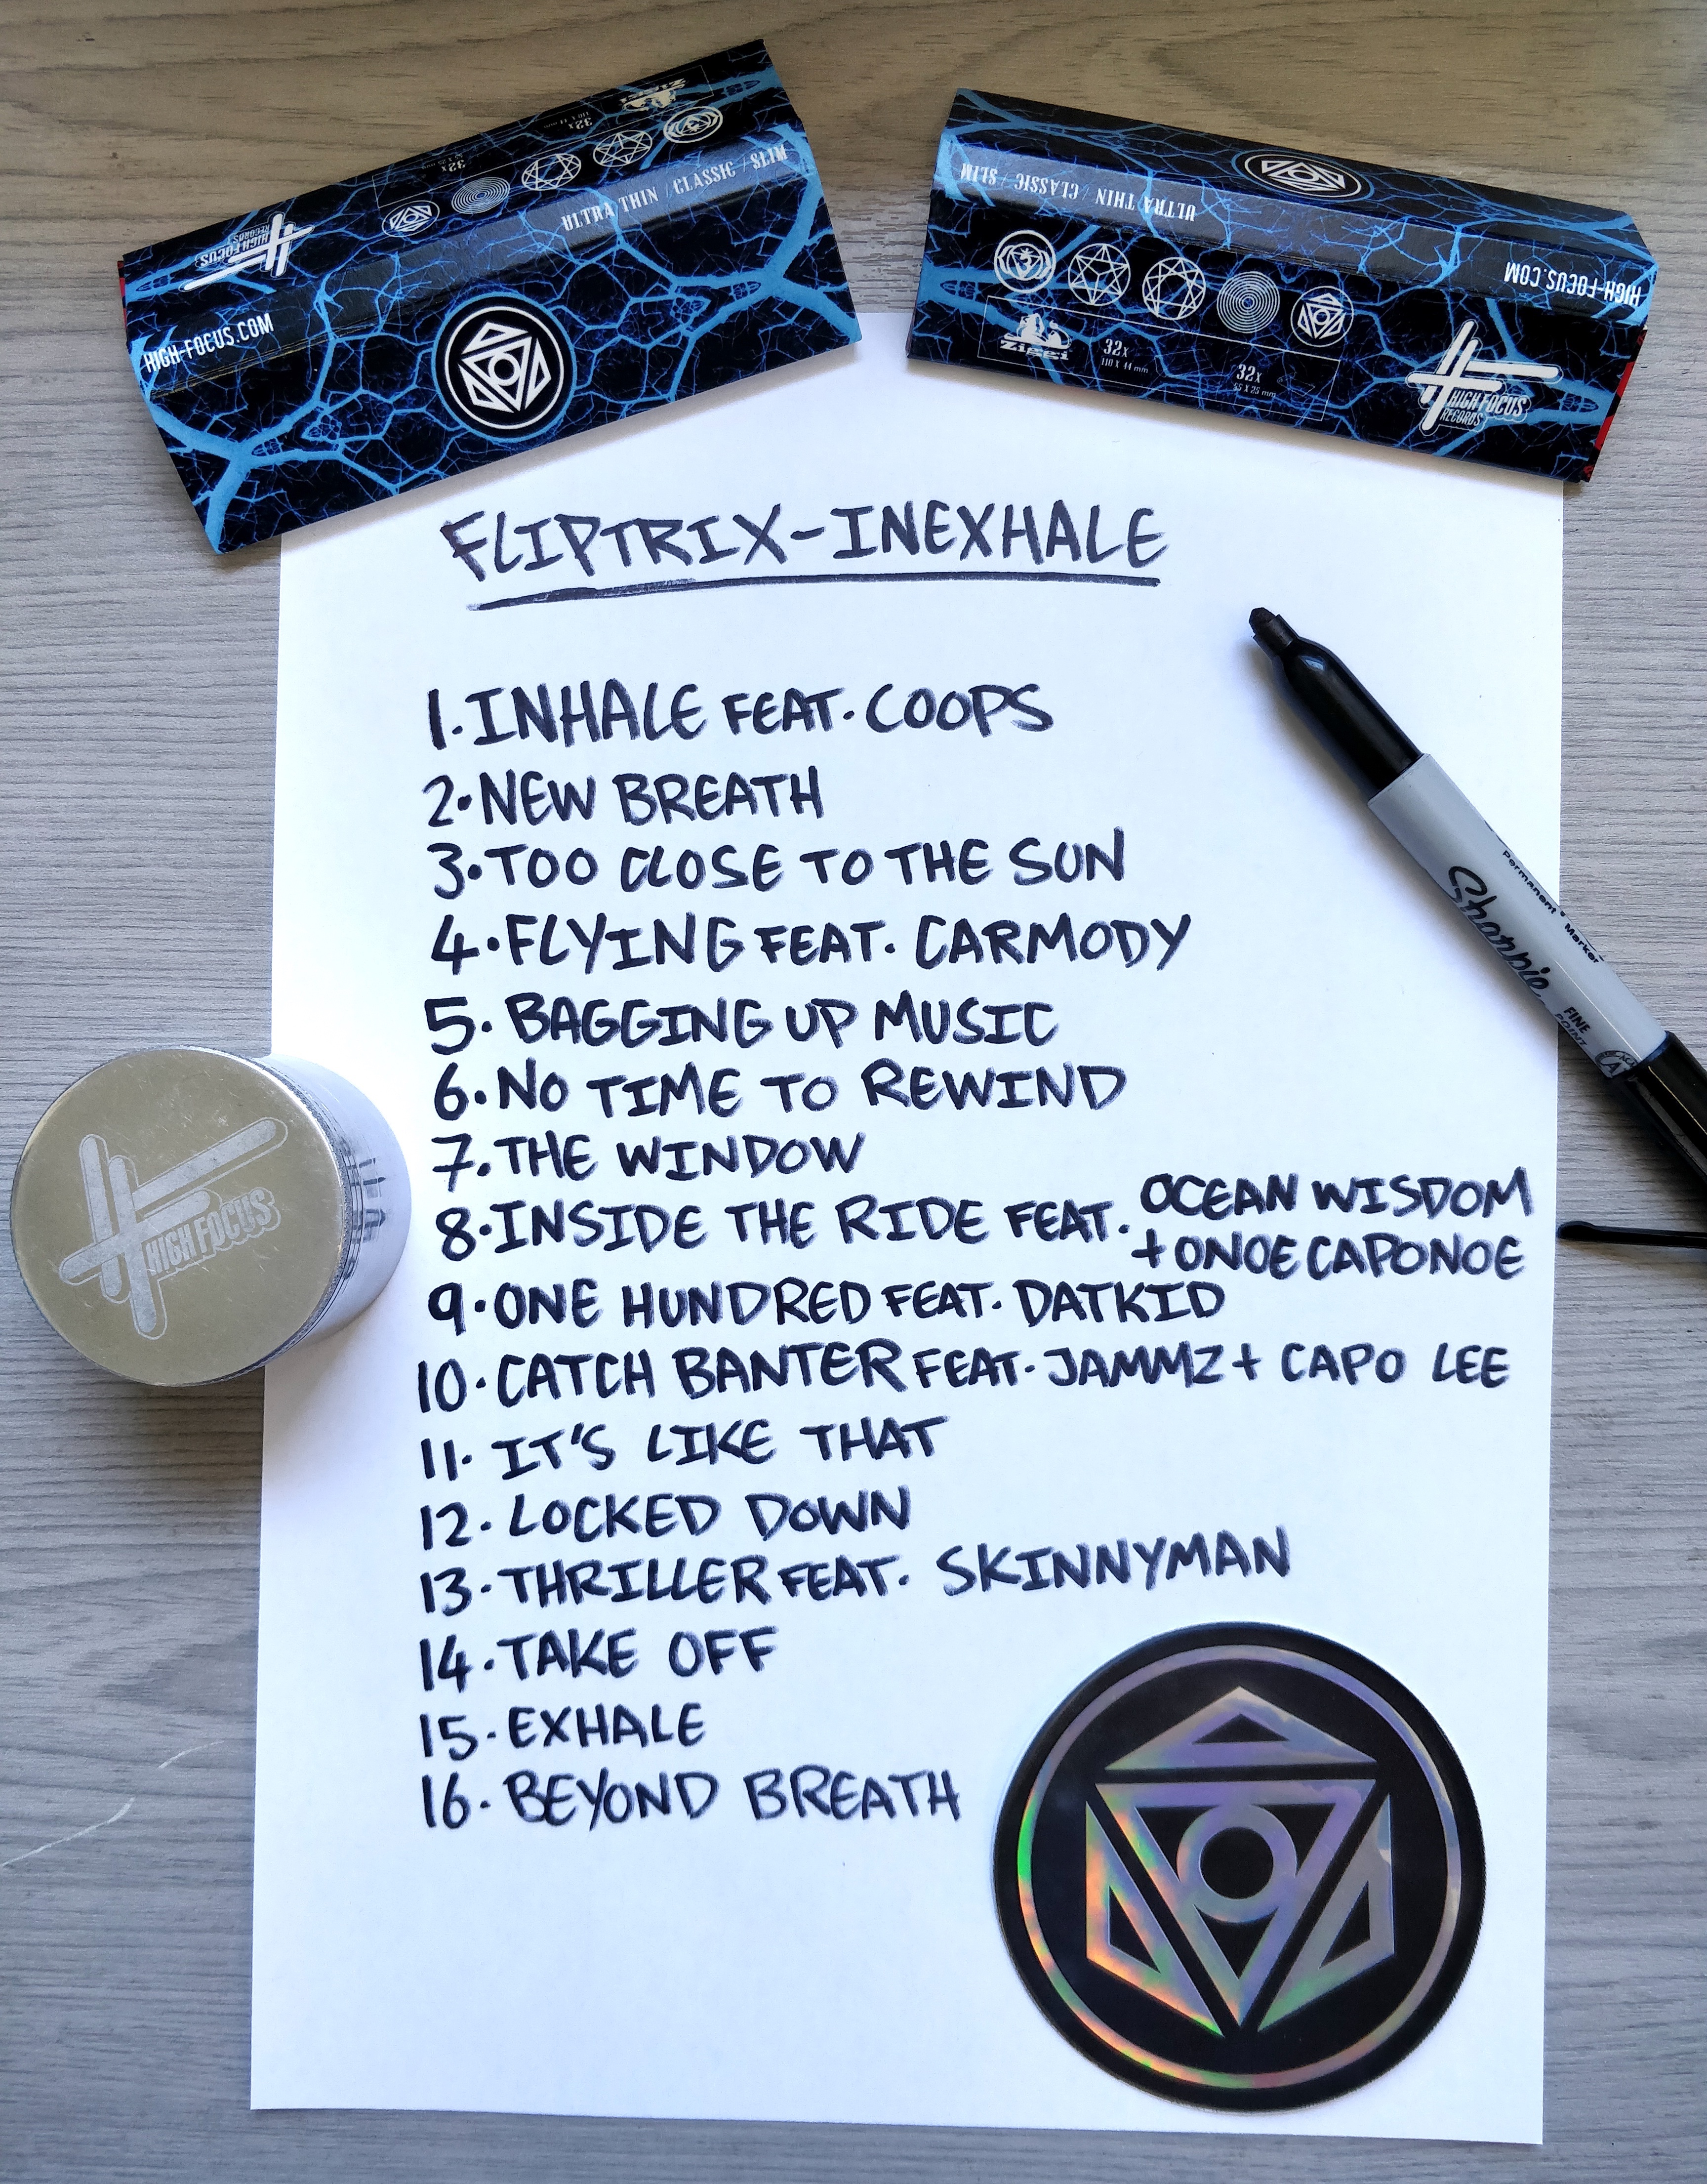 Ziggi
32x
110 X 44 mm
32x
ULTRA THIN / CLASSIC / SLIM
HIGH FOCUS
RECORDS
HIGH-FOCUS.COM
ULTRA THIN / CLASSIC / SLIM
HIGH-FOCUS.COM
Ziggi
32x
110 X 44 mm
32x
55 X 25 mm
HIGH FOCUS
RECORDS
FLIPTRIX-INEXHALE
1. INHALE FEAT. COOPS
2. NEW BREATH
3. TOO CLOSE TO THE SUN
4. FLYING FEAT. CARMODY
5. BAGGING UP MUSIC
6. NO TIME TO REWIND
7. THE WINDOW
8. INSIDE THE RIDE FEAT. OCEAN WISDOM
+ ONOE CAPONOE
9. ONE HUNDRED FEAT. DATKID
10. CATCH BANTER FEAT. JAMMZ + CAPO LEE
11. IT'S LIKE THAT
12. LOCKED DOWN
13. THRILLER FEAT. SKINNYMAN
14. TAKE OFF
15. EXHALE
16. BEYOND BREATH
Permanent Marker
Sharpie
FINE
POINT
HIGH FOCUS